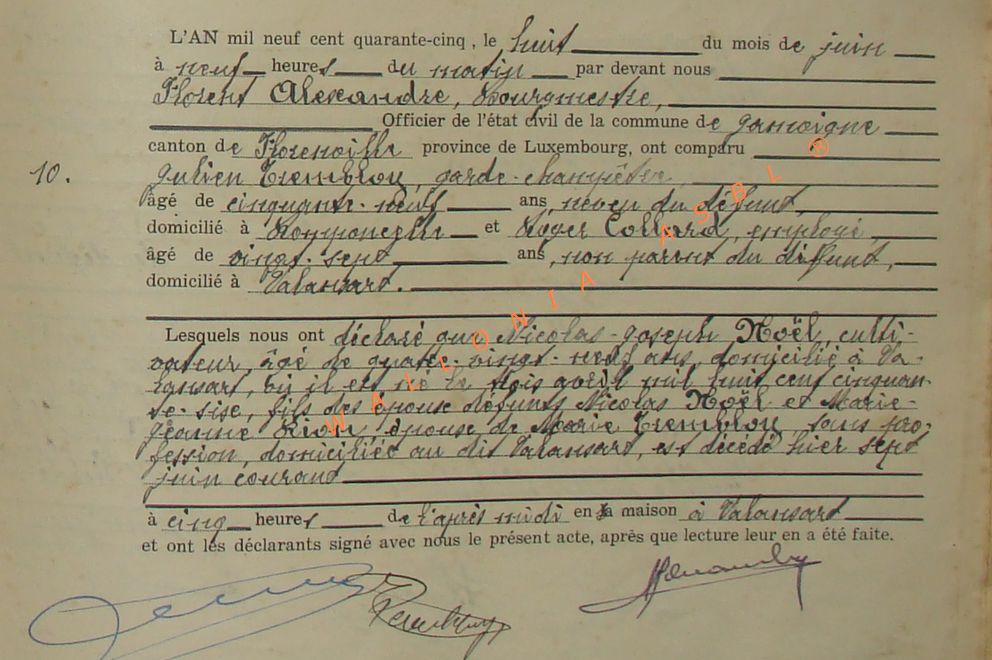 L'AN mil neuf cent quarante-cinq, le huit du mois de juin
à neuf heures du matin par devant nous
Florent Alexandre, bourgmestre,
Officier de l'état civil de la commune de Jamoigne
canton de Florenville province de Luxembourg, ont comparu
10. Julien Tremblou, garde-champêtre,
âgé de cinquante-neuf ans, neveu du défunt,
domicilié à et Roger Collard, employé,
âgé de vingt-sept ans, non parent du défunt,
domicilié à Valansart.
Lesquels nous ont déclaré que Nicolas-Joseph Noël, culti-
vateur, âgé de quatre-vingt-neuf ans, domicilié à Va-
lansart, où il est né le trois avril mil huit cent cinquan-
te-sise, fils des épouse défunts Nicolas Noël et Marie-
Jeanne épouse de Marie Tremblou, sans pro-
fession, domiciliée au dit Valansart, est décédé hier sept
juin courant
à cinq heures de l'après midi en sa maison à Valansart
et ont les déclarants signé avec nous le présent acte, après que lecture leur en a été faite.
WALLONIA ASBL ®